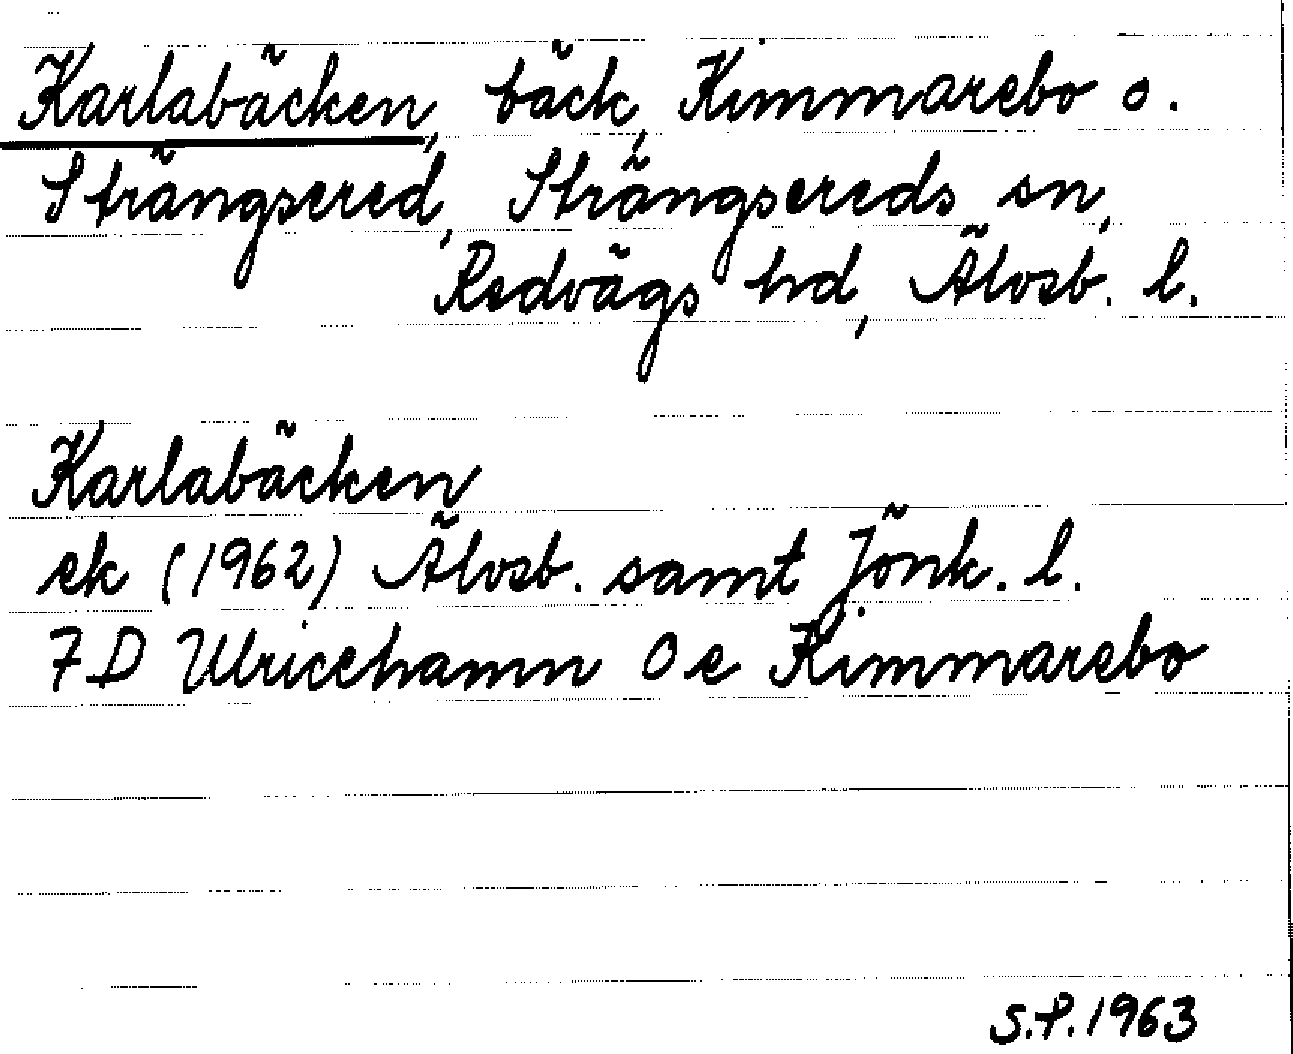 Karlabäcken, bäck, Kimmarebo o.
Strängsered, Strängsereds sn,
Redvägs hd, Älvsb. l.
Karlabäcken
ek (1962) Älvsb. samt Jönk. l.
7 D Ulricehamn 0 e Kimmarebo
S.P. 1963